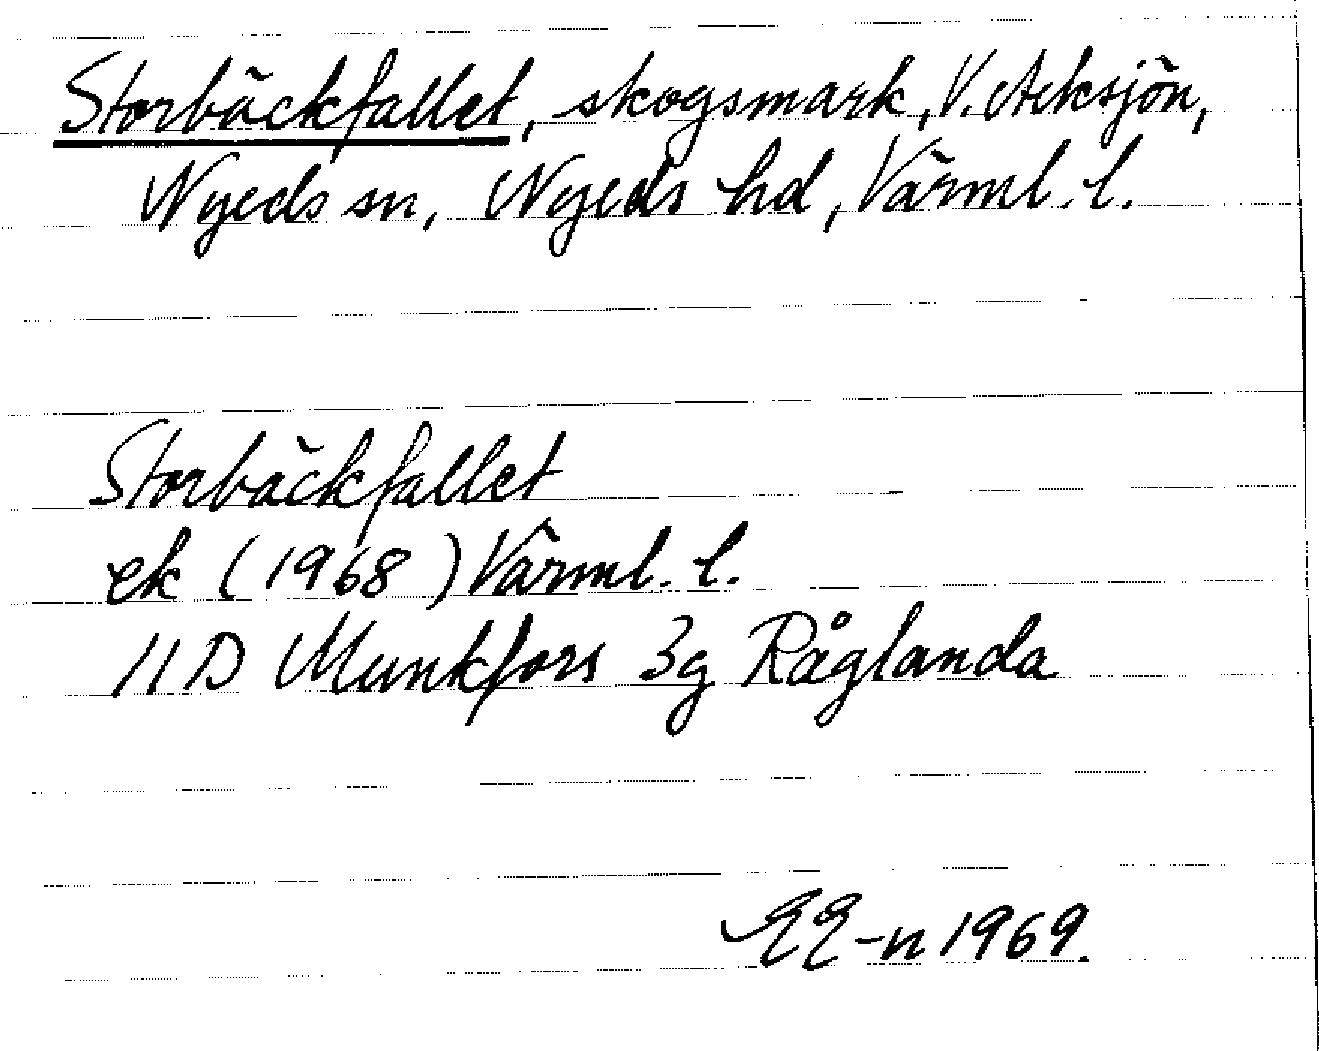 Storbäckfallet, skogsmark, V. Acksjön,
Nyeds sn, Nyeds hd, Värml. l.
Storbäckfallet
ek (1968) Värml. l.
11D Munkfors 3g Råglanda
EE-n 1969.